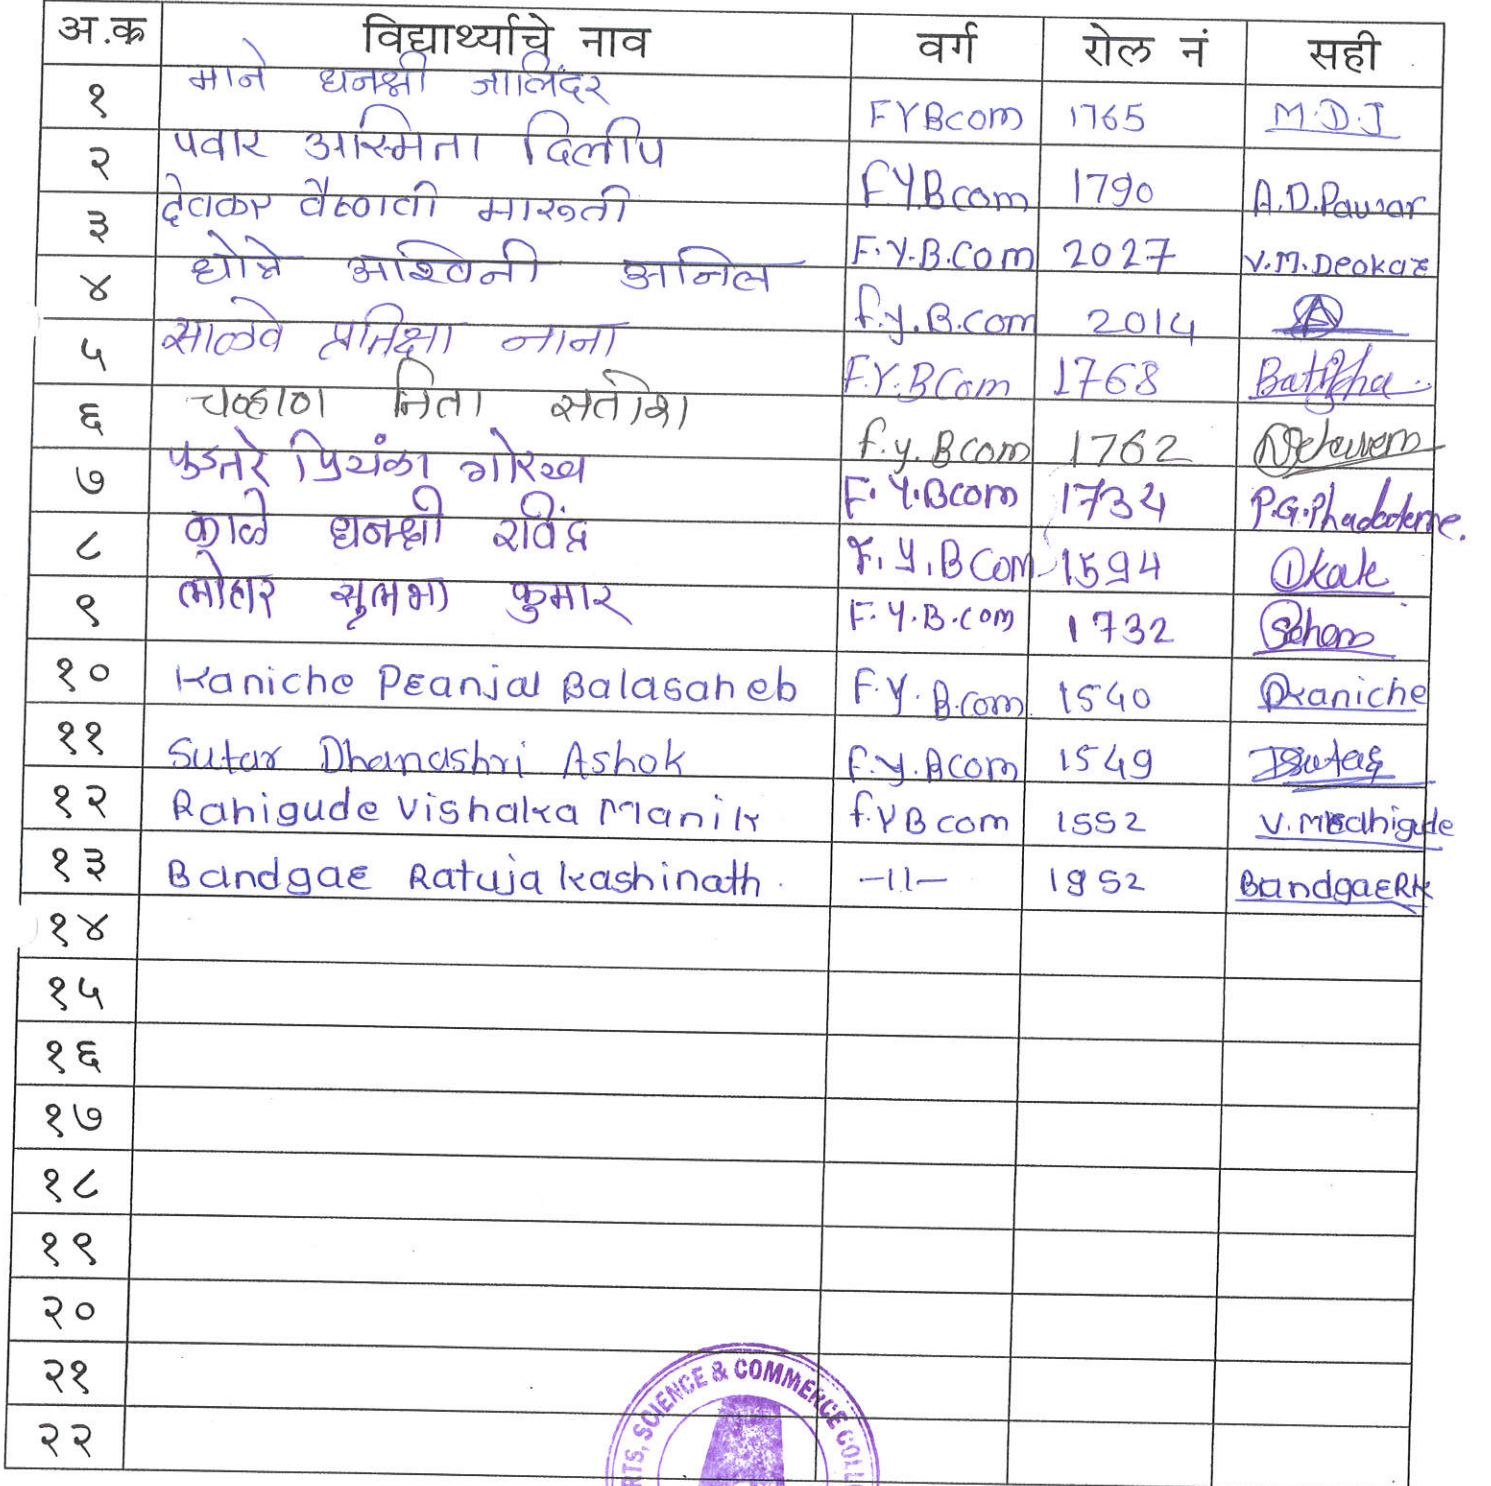 अ.क्र विद्यार्थ्याचे नाव वर्ग रोल नं सही
१ माने धनश्री जालिंदर FYBcom 1765 M.D.J
२ पवार अस्मिता दिलीप F.Y.Bcom 1790 A.D.Pawar
३ देवकर वैष्णवी मारुती F.Y.B.Com 2027 V.M.Deokar
४ धोत्रे अश्विनी अनिल f.y.B.com 2014
५ साळवे प्रतिक्षा नाना F.Y.BCom 1768
६ चव्हाण निता सतोश f.y.Bcom 1762
७ फडतरे प्रियंका गोरख F.Y.Bcom 1734
८ काळे धनश्री रविंद्र F.Y.BCom 1594 Dkale
९ लोहार सुलभा कुमार F.Y.B.com 1732
१० Kaniche Pranjal Balasaheb F.Y.B.com 1540 Pkaniche
११ Sutar Dhanashri Ashok F.y.Bcom 1549 DSutar
१२ Rahigude Vishaka Manik f.YBcom 1552
१३ Bandgar Ratuja Kashinath. -11- 1952 BandgarRK
१४
१५
१६
१७
१८
१९
२०
२१
२२
ARTS, SCIENCE & COMMERCE COLL